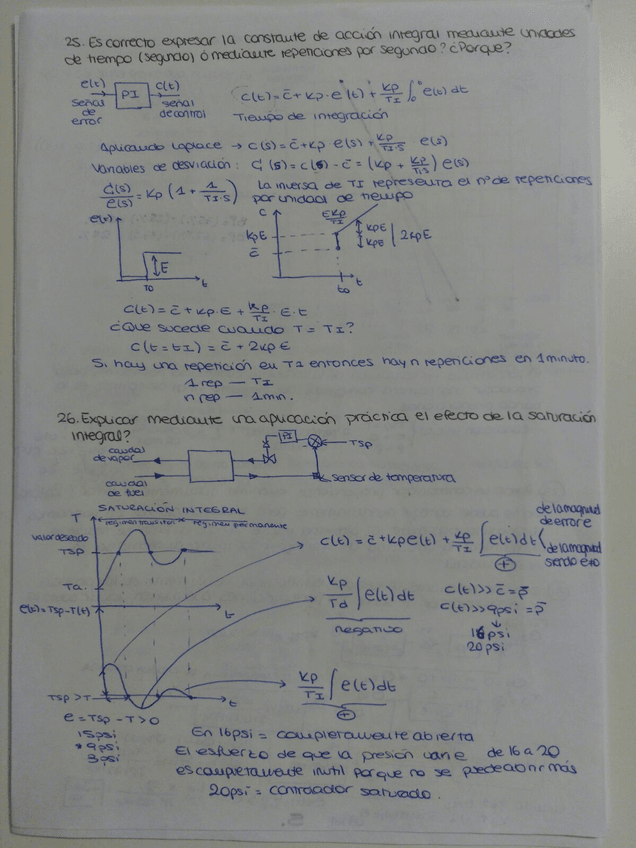 25. Es correcto expresar la constante de acción integral mediante unidades
de tiempo (segundo) ó mediante repeticiones por segundo? ¿Porque?
e(t) PI c(t)
señal de error
señal de control
c(t) = c̄ + Kp · e(t) + Kp/TI ∫₀ e(t) dt
Tiempo de integración
Aplicando Laplace → c(s) = c̄ + Kp e(s) + Kp/TI·s e(s)
Variables de desviación: C(s) = c(s) - c̄ = (Kp + Kp/TI·s) e(s)
C(s)/e(s) = Kp (1 + 1/TI·s)
La inversa de TI representa el nº de repeticiones
por unidad de tiempo
e(t) E to t
c EKp/TI KpE KpE KpE 2KpE c̄ to t
c(t) = c̄ + Kp·E + Kp/TI · E·t
¿Que sucede cuando T = TI?
c(t = tI) = c̄ + 2Kp E
Si hay una repetición en TI entonces hay n repeticiones en 1 minuto.
1 rep — TI
n rep — 1 min.
26. Explicar mediante una aplicación práctica el efecto de la saturación
integral?
caudal de vapor
caudal de fuel
PI
TSP
sensor de temperatura
SATURACIÓN INTEGRAL
T
régimen transitorio régimen permanente
valor deseado
TSP
Ta
e(t) = TSP - T(t)
t
c(t) = c̄ + Kp e(t) + Kp/TI ∫ e(t) dt
de la magnitud
de error e
de la magnitud
+
Kp/Td ∫ e(t) dt
negativo
c(t) >> c̄ = p̄
c(t) >> 9psi = p̄
16 psi
20 psi
TSP > T
t
Kp/TI ∫ e(t) dt
+
e = TSP - T > 0
15 psi
9 psi
3 psi
En 16 psi = completamente abierta
El esfuerzo de que la presión varíe de 16 a 20
es completamente inutil porque no se puede abrir más
20 psi = controlador saturado.